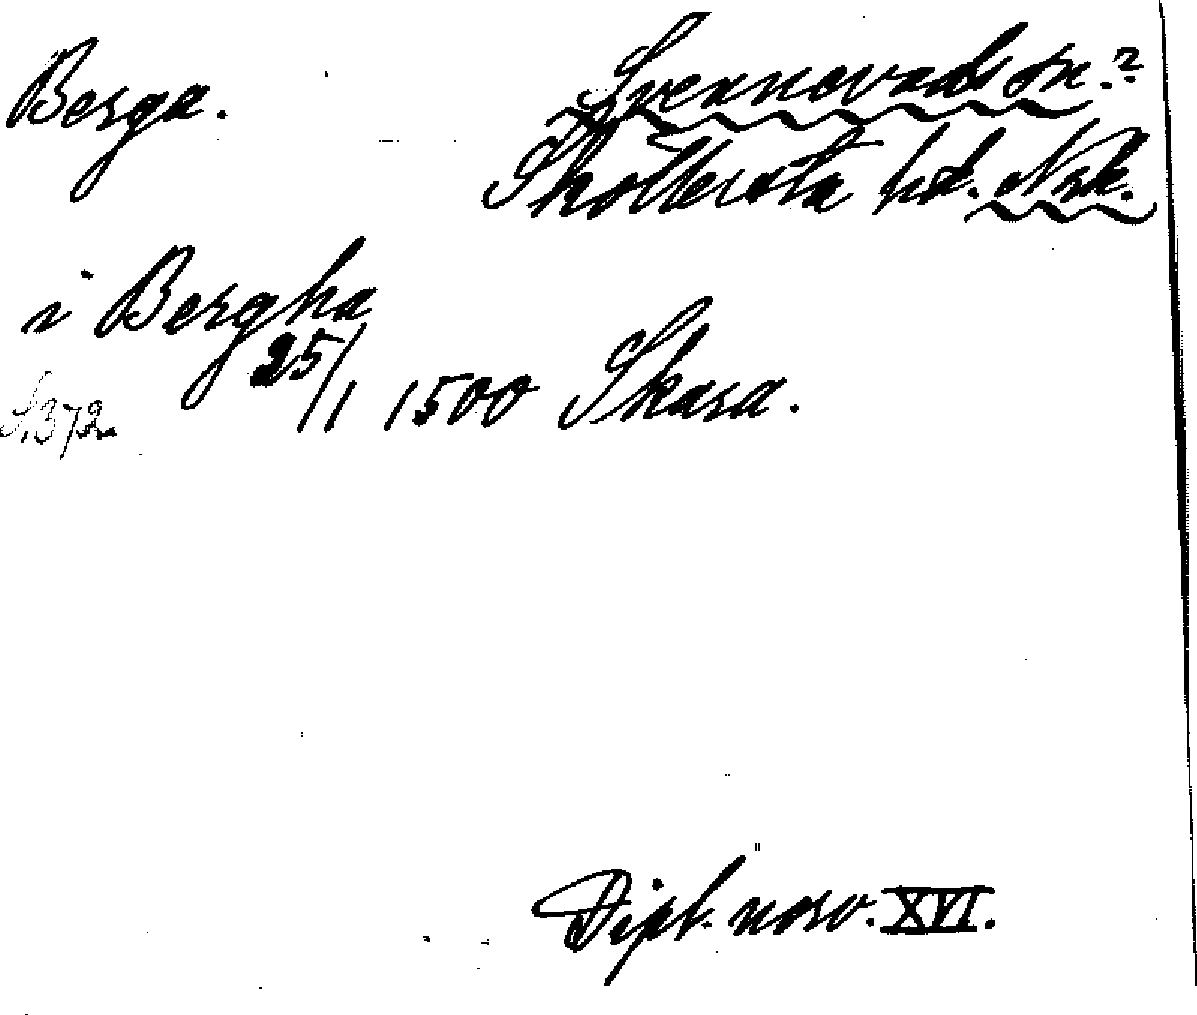 Berga. Svennevads sn.?
Skollersta hd. Nrk.
i Bergha
25/1 1500 Skara.
S.372
Dipl. norv. XVI.